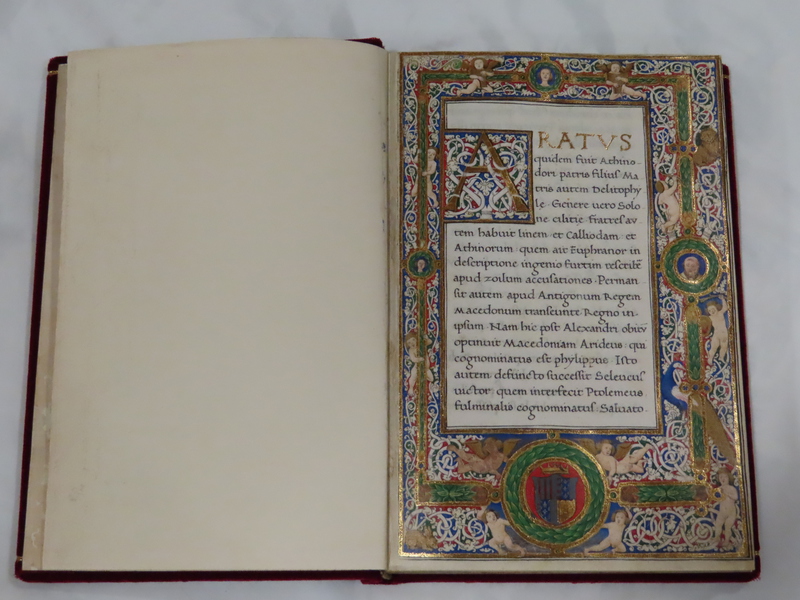 ARATVS
quidem fuit Athino
dori patris filius Ma
tris autem Delitophy
le. Genere uero Solo
ne cilitie fratres au
tem habuit linem et Calliodam et
Athinorum quem ait Euphranor in
descriptione ingenio furtim rescribẽ
apud zoilum accusationes. Perman
sit autem apud Antigonum Regem
Macedonum transeunte Regno in
ipsum. Nam hic post Alexandri obitũ
optinuit Macedoniam Arideus. qui
cognominatus est phylippus. Isto
autem defuncto successit Seleucus
uictor. quem interfecit Ptolemeus
fulminalis cognominatus. Saluato